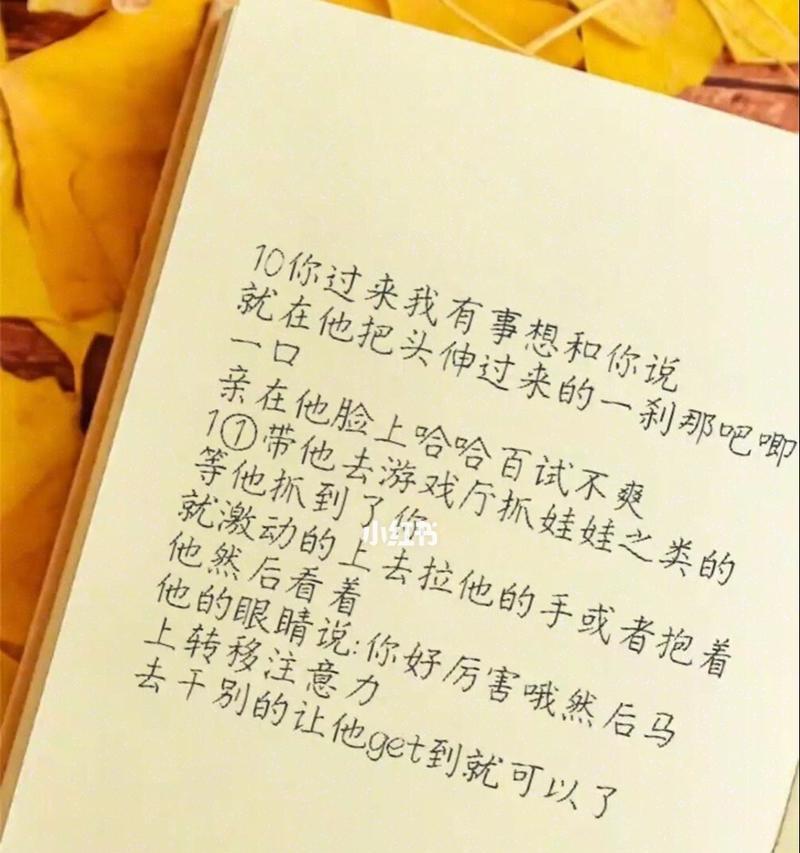 10你过来我有事想和你说
就在他把头伸过来的一刹那吧唧
一口
亲在他脸上哈哈百试不爽
1①带他去游戏厅抓娃娃之类的
等他抓到了你
就激动的上去拉他的手或者抱着
他然后看着
他的眼睛说:你好厉害哦然后马
上转移注意力
去干别的让他get到就可以了
小红书